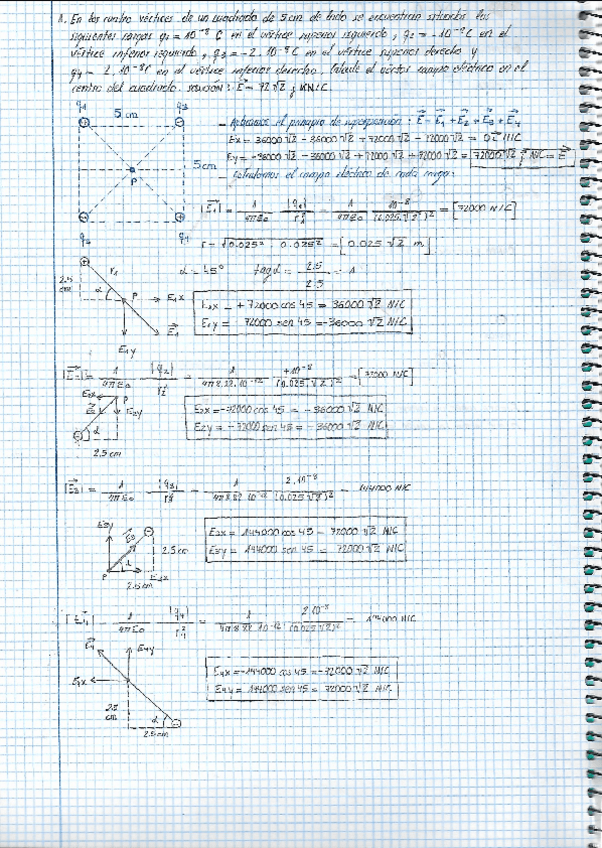 1. En los cuatro vértices de un cuadrado de 5 cm de lado se encuentran situadas las
siguientes cargas q1 = 10⁻⁸ C en el vértice superior izquierdo, q2 = -10⁻⁸ C en el
vértice inferior izquierdo, q3 = -2·10⁻⁸ C en el vértice superior derecho y
q4 = 2·10⁻⁸ C en el vértice inferior derecho. Calcule el vector campo eléctrico en el
centro del cuadrado. solución: E = 72√2 j KN/C
q1 q3
5 cm
_ Aplicamos el principio de superposición: E = E1 + E2 + E3 + E4
Ex = 36000√2 - 36000√2 + 72000√2 - 72000√2 = 0 i N/C
5 cm
Ey = -36000√2 - 36000√2 + 72000√2 + 72000√2 = 72000√2 j N/C = E
P
el campo eléctrico de cada carga:
|E1| = 1/4πε0 |q1|/r1² = 1/4πε0 10⁻⁸/(0.025·√2)² = [72000 N/C]
q2
r = √0.025² 0.025² = [0.025√2 m]
α = 45° tag α = 2.5/2.5 = 1
2.5 cm r1 α P E1x
E1x = +72000 cos 45 = 36000√2 N/C
E1y = 72000 sen 45 = -36000√2 N/C
E1y E1
|E2| = 1/4πε0 |q2|/r2² = 1 +10⁻⁸/(0.025√2)² = [72000 N/C]
E2x P
E2y
E2x = -72000 cos 45 = -36000√2 N/C
E2y = -72000 sen 45 = -36000√2 N/C
α
2.5 cm
|E3| = 1/4πε0 |q3| = 1 2·10⁻⁸/(0.025√2)² = 144000 N/C
E3y
E3x = 144000 cos 45 = 72000√2 N/C
2.5 cm
E3y = 144000 sen 45 = 72000√2 N/C
P α E3x
2.5 cm
|E4| = 1/4πε0 |q4|/r4² = 1 2·10⁻⁸/(0.025√2)² = 144000 N/C
E4 E4y
E4x = -144000 cos 45 = -72000√2 N/C
E4x
E4y = 144000 sen 45 = 72000√2 N/C
2.5 cm α
2.5 cm